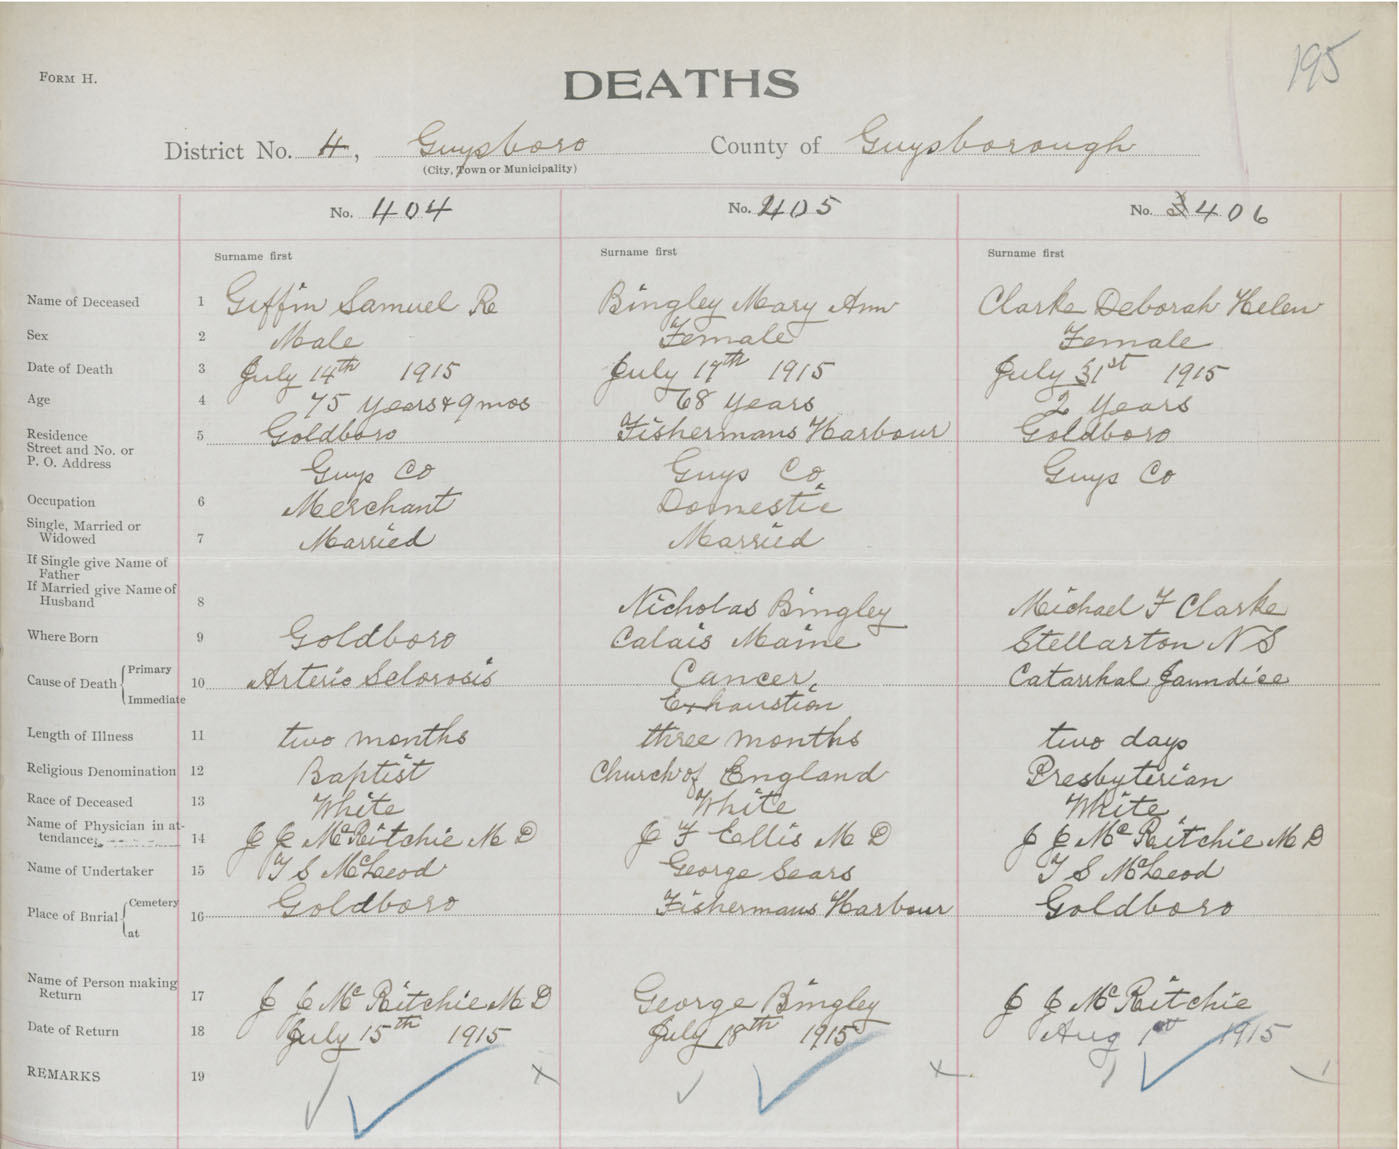 195
FORM H.
DEATHS
District No. 4, Guysboro County of Guysborough
(City, Town or Municipality)
No. 404 No. 405 No. 406
Surname first Surname first Surname first
Name of Deceased 1 Giffin Samuel Re Bingley Mary Ann Clarke Deborah Helen
Sex 2 Male Female Female
Date of Death 3 July 14th 1915 July 17th 1915 July 31st 1915
Age 4 75 years & 9 mos 68 years 2 years
Residence
Street and No. or
P. O. Address
5 Goldboro Fishermans Harbour Goldboro
Guys Co Guys Co Guys Co
Occupation 6 Merchant Domestic
Single, Married or
Widowed 7 Married Married
If Single give Name of
Father
If Married give Name of
Husband 8 Nicholas Bingley Michael F Clarke
Where Born 9 Goldboro Calais Maine Stellarton N S
Cause of Death Primary
Immediate
10 Arterio Sclorosis Cancer Catarrhal Jaundice
Exhaustion
Length of Illness 11 two months three months two days
Religious Denomination 12 Baptist Church of England Presbyterian
Race of Deceased 13 White White White
Name of Physician in at-
tendance, 14 J J McRitchie M D J F Ellis M D J J McRitchie M D
Name of Undertaker 15 T S McLeod George Sears T S McLeod
Place of Burial Cemetery
at
16 Goldboro Fishermans Harbour Goldboro
Name of Person making
Return 17 J J McRitchie M D George Bingley J J McRitchie
Date of Return 18 July 15th 1915 July 18th 1915 Aug 1st 1915
REMARKS 19